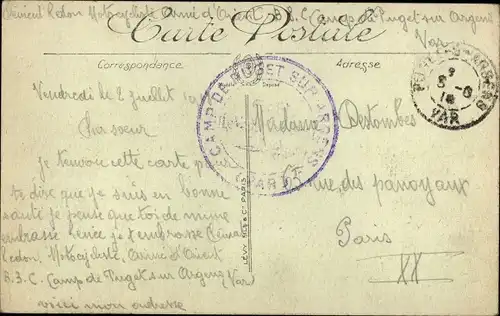 Clément Ledon Motocycliste Armée d'Orient B.3.C. Camp de Puget sur Argens
Var
Carte Postale
Correspondance
Adresse
Vendredi le 2 juillet
Cher soeur
je t'envoie cette carte pour
te dire que je suis en bonne
santé je pense que toi de même
embrasse je t'embrasse Clément
Ledon, Motocycliste, Armée d'Orient
B.3.C. Camp de Puget sur Argens (Var)
voici mon adresse
CAMP DE PUGET SUR ARGENS
(VAR)
LÉVY FILS & Cie PARIS
Madame Destombes
67 rue, des panoyaux
Paris
XX
PUGET-S-ARGENS
VAR